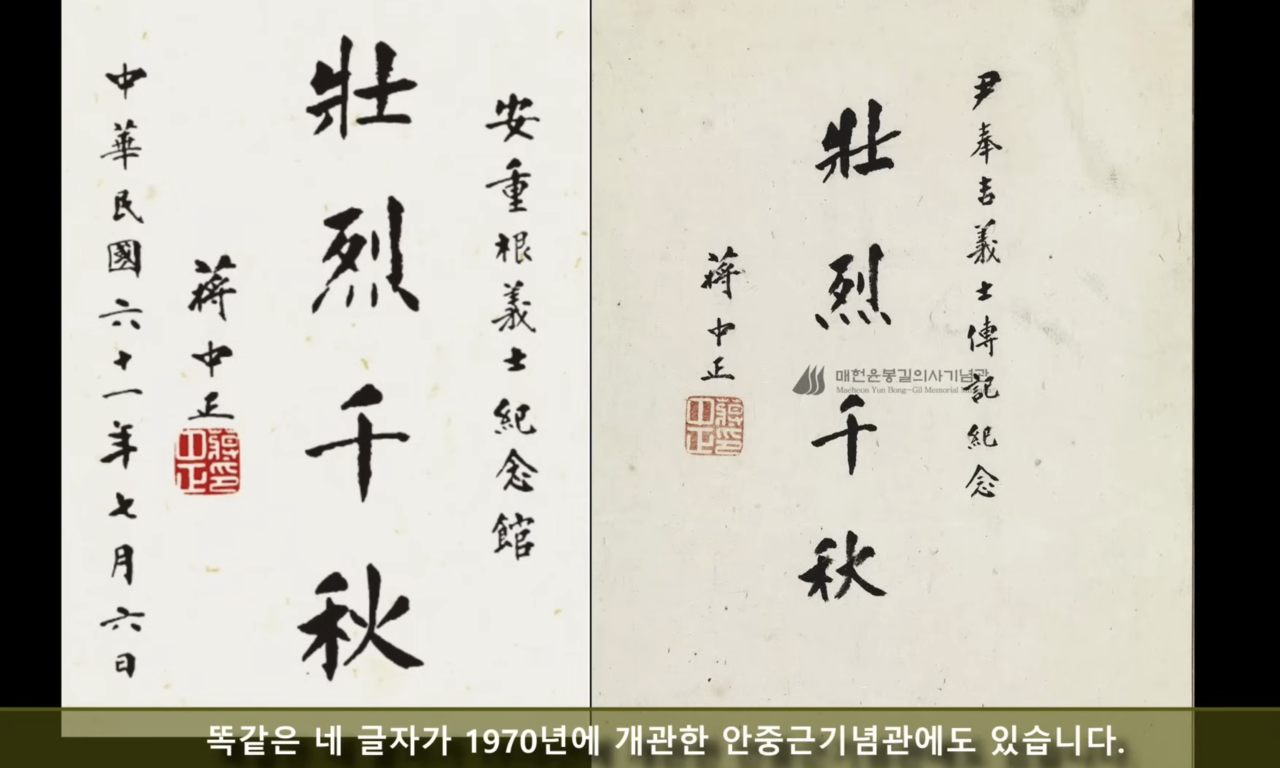 安重根義士紀念館
壯烈千秋
蔣中正
蔣中正印
中華民國六十一年七月六日
尹奉吉義士傳記紀念
壯烈千秋
蔣中正
蔣中正印
매헌윤봉길의사기념관
Maeheon Yun Bong-Gil Memorial
똑같은 네 글자가 1970년에 개관한 안중근기념관에도 있습니다.